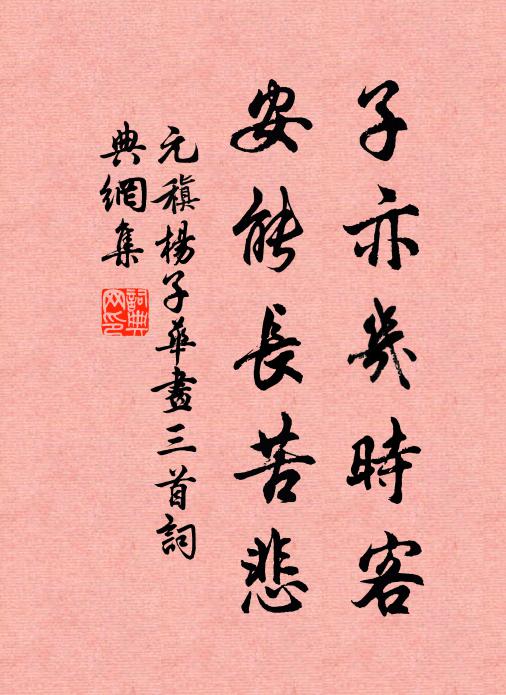 子亦幾時客
安能長苦悲
元稹楊子華畫三首詞
典網集
詞典
网印